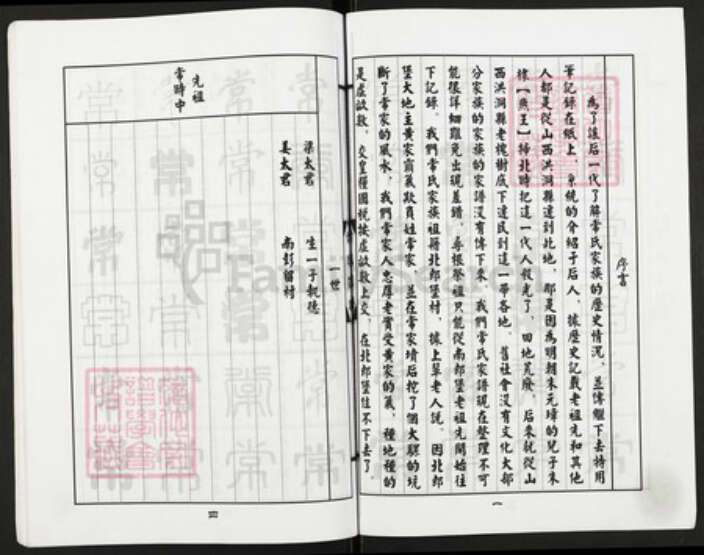 序言
為了讓后一代了解常氏家族的歷史情況，並傳繼下去特用
筆記錄在紙上，系統的介紹于后人，據歷史記載老祖先和其他
人都是從山西洪洞縣遷到此地，那是因為明朝朱元璋的兒子朱
棣【燕王】掃北時把這一代人殺光了，田地荒廢，后來就從山
西洪洞縣老槐樹底下遷民到這一帶各地，舊社會沒有文化大部
分家族的家譜沒有傳下來，我們常氏家譜現在整理不可
能很詳細難免出現差錯，尋根祭祖只能從南郎堡老祖先開始往
下記錄，我們常氏家族祖籍北郎堡村，據上輩老人說，因北郎
堡大地主黃家霸氣欺負姓常家，並在常家墳后挖了個大騾的坑
斷了常家的風水，我們常家人忠厚老實受黃家的氣，種地種的
是虛畝數，交皇糧國稅按虛畝數上交，在北郎堡住不下去了，
一
一世
先祖
常時中
梁太君 生一子執德
姜太君 南彭留村
四